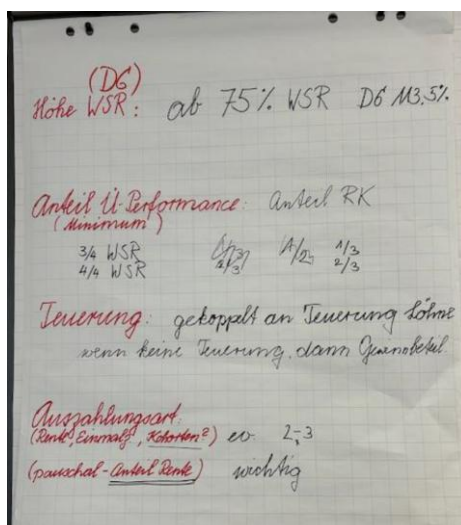 (DG)
Höhe WSR: ab 75% WSR DG 113,5%
Anteil Ü-Performance: Anteil RK
(Minimum)
3/4 WSR 1/2 1/3
4/4 WSR 2/3
Teuerung: gekoppelt an Teuerung Löhne
wenn keine Teuerung, dann Gewinnbeteil.
Auszahlungsart:
(Rente, Einmalz, Kohorten?) ev. 2-3
(pauschal - Anteil Rente) wichtig